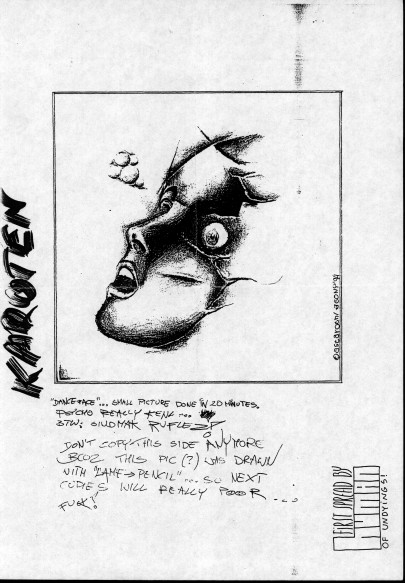 KAROTEN
"DANCEFACE"... SMALL PICTURE DONE IN 20 MINUTES.
PSYCHO REALLY
BTW:
DON'T COPY THIS SIDE ANYMORE
BCOZ THIS PIC (?) WAS DRAWN
WITH "LAME → PENCIL"... SO NEXT
COPIES WILL REALLY POOR...
FUCK!
FIRST SPREAD BY
OF UNDYINGS!